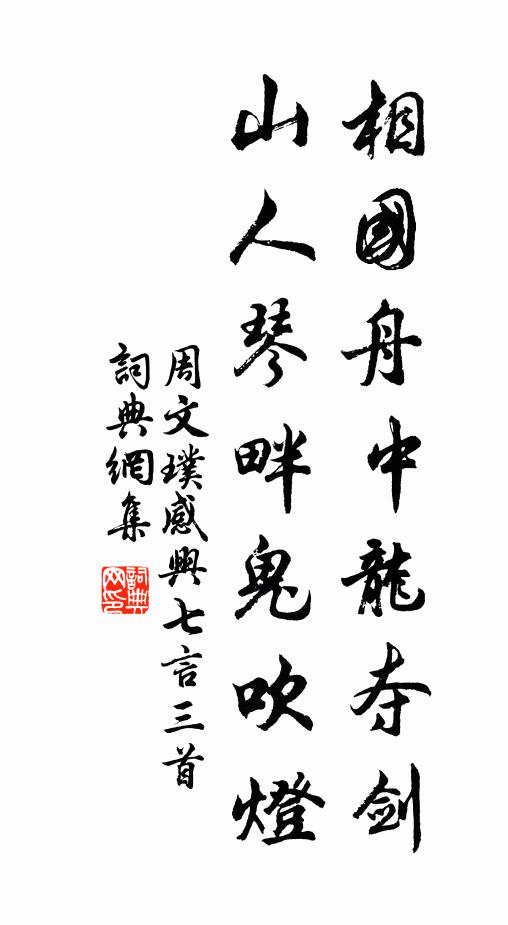 相國舟中龍夺剑
山人琴畔鬼吹燈
周文璞感興七言三首
詞典網集
詞典網印